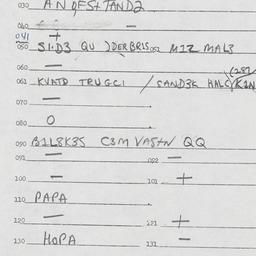 030 ANQESTTAND2
040 + -
041
050 S1.D3 QU DERBRIS 052 M1Z MAL3
060 -
061 KVATD TRUGCI / SAND3K HALC
070 -
080 O
090 B1L8K3S C3M VAS+N QQ
091 - 092 -
100 - 101 +
110 PAPA
120 - 121 +
130 HOPA 131 -